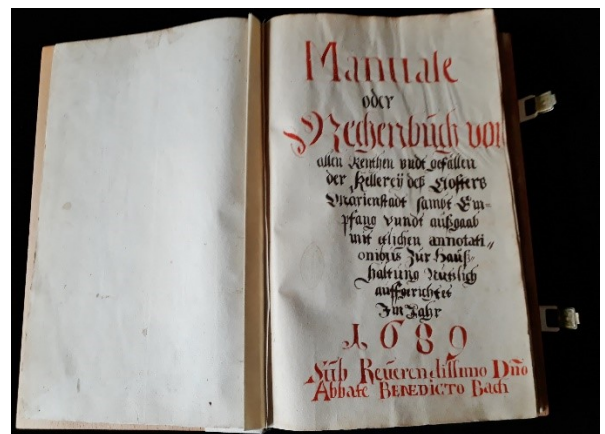 Manuale
oder
Rechenbuch von
allen Renthen undt gefällen
der Kellereÿ deß Closters
Marienstadt sambt Em-
pfang vundt außgaab
mit etlichen annotati„
onibus Zur Hauß-
haltung Nutzlich
auffgerichtet
Im Jahr
1689
Sub Reverendissimo Dno
Abbate BENEDICTO Bach